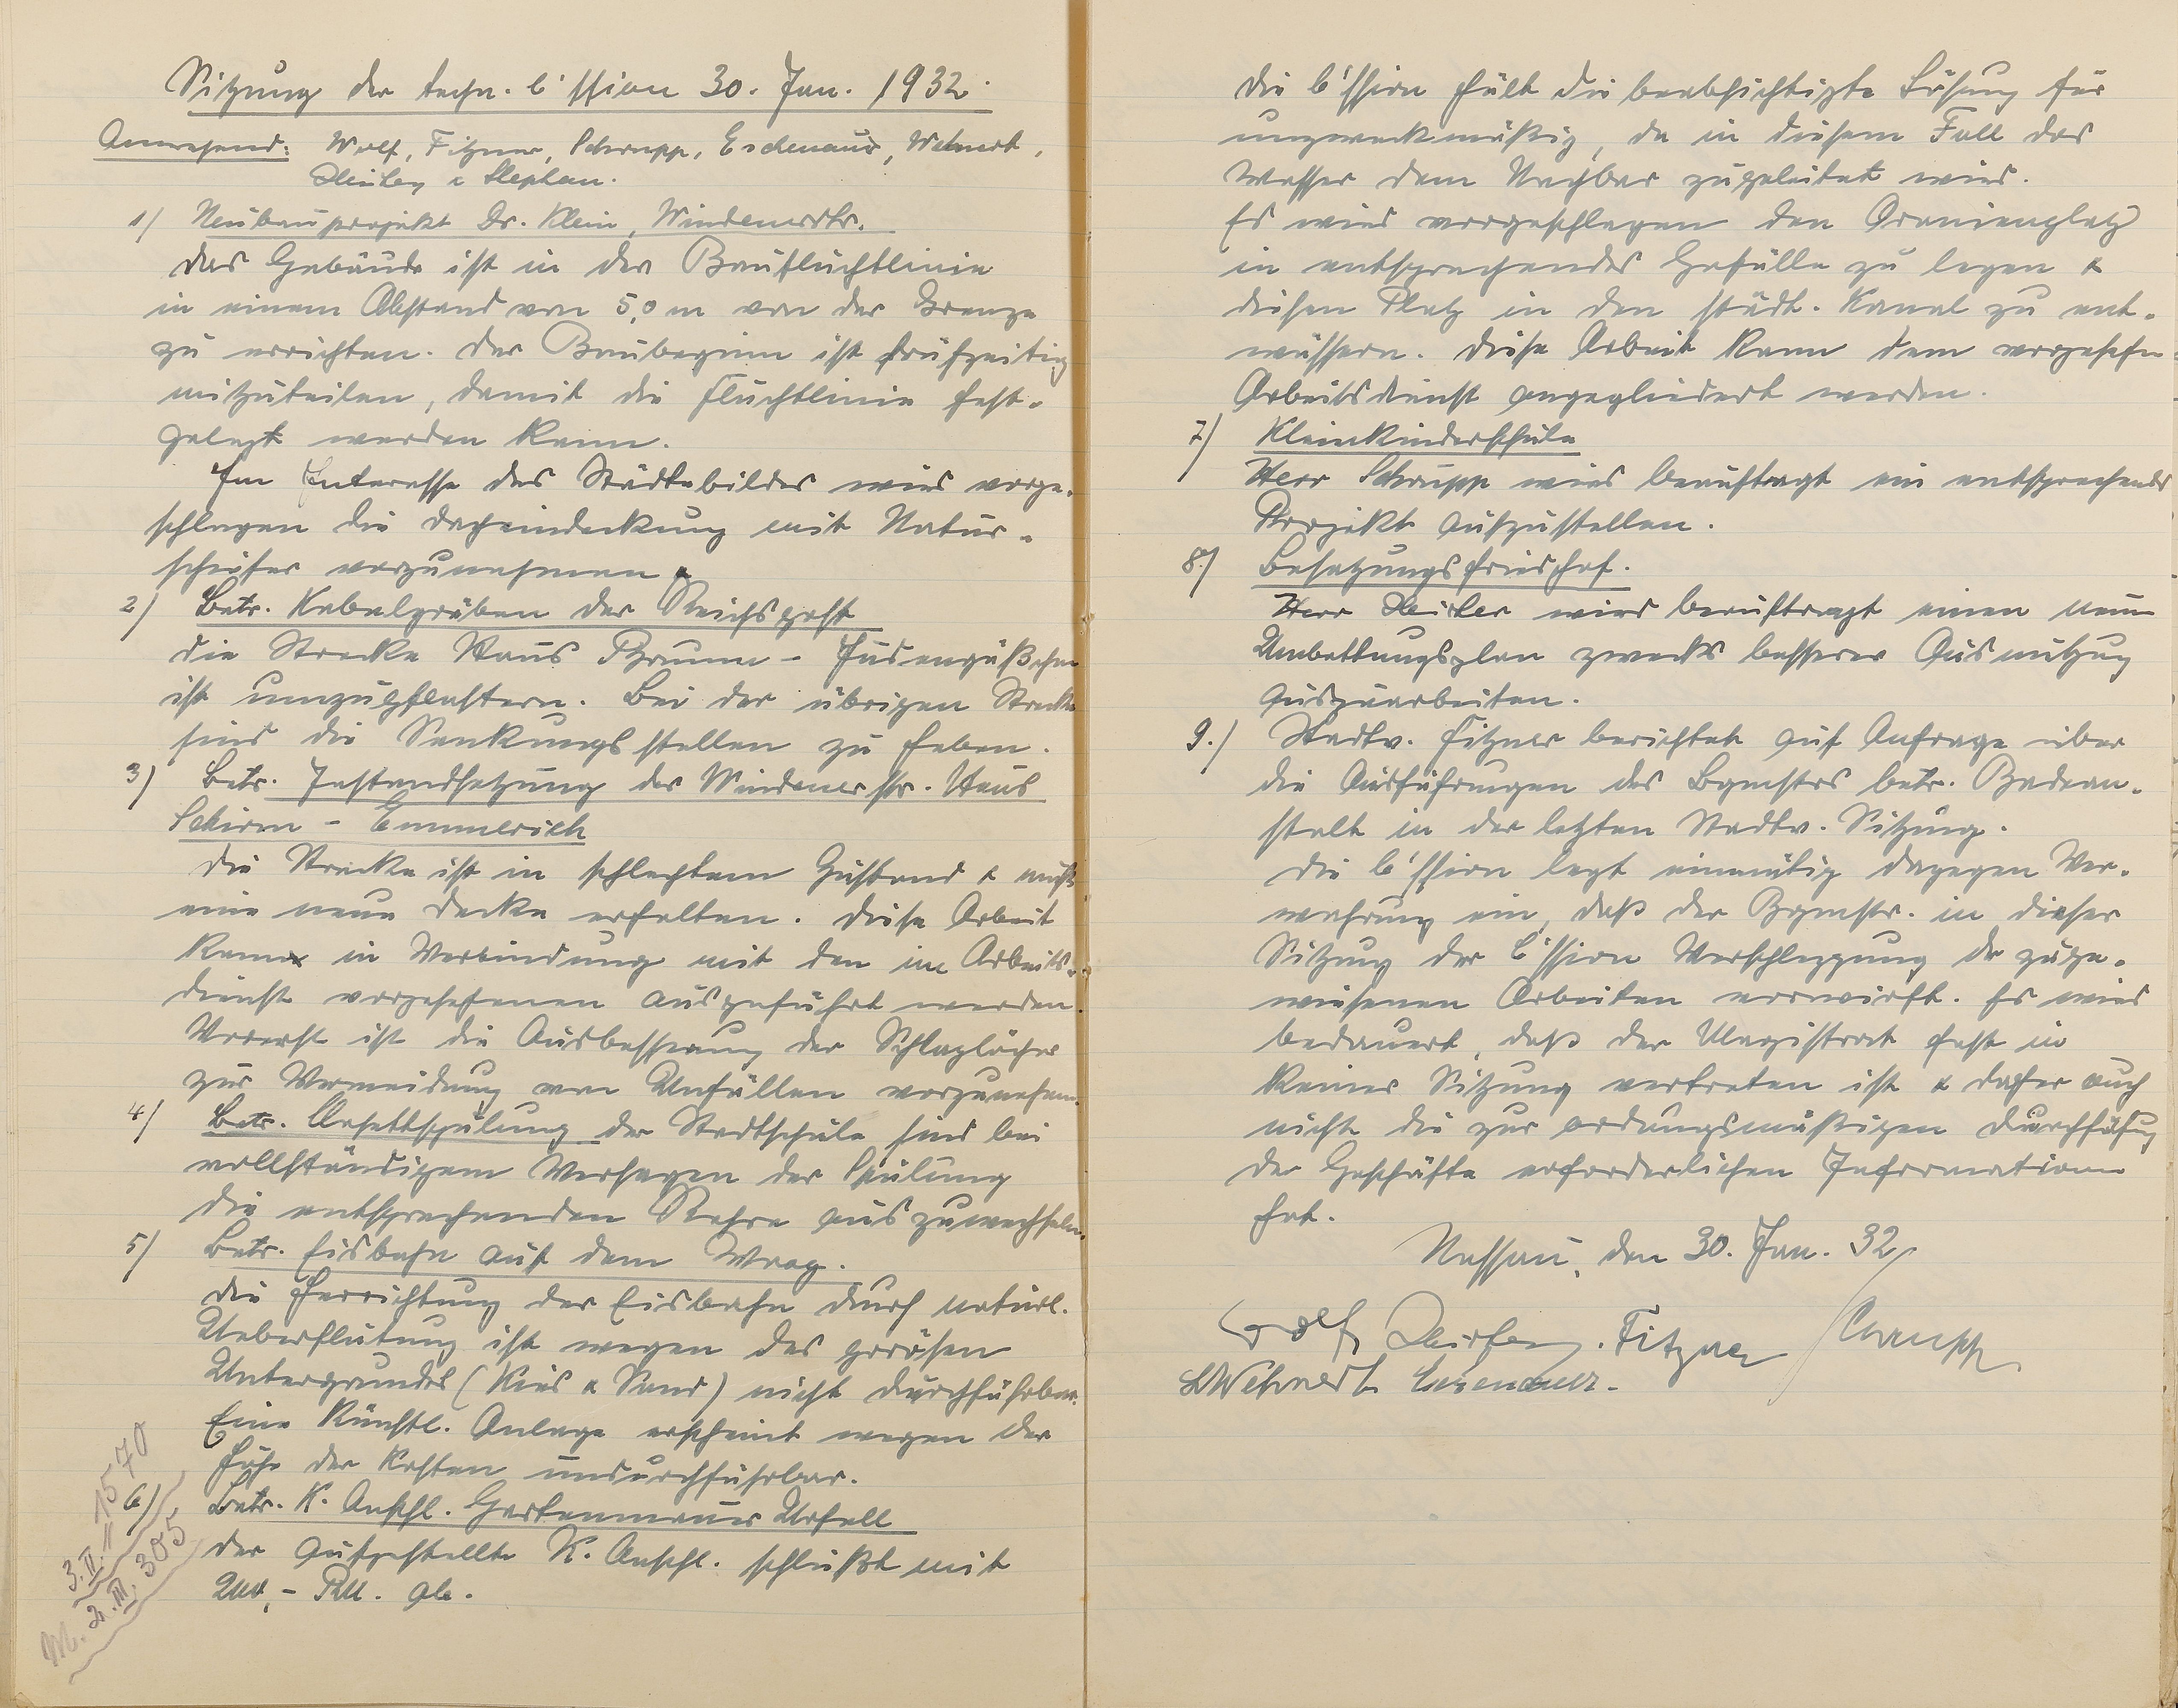 Sitzung der techn. C'ssion 30. Jan. 1932.
Anwesend: Wolf, Fitzner, Schrupp, Eschenauer, Wehnert,
& Stephan.
1) Neubauprojekt Dr. Klein, Windenerstr.
Das Gebäude ist in der Baufluchtlinie
in einem Abstand von 5,0 m von der Grenze
zu errichten. Der Baubeginn ist frühzeitig
mitzuteilen, damit die Fluchtlinie fest-
gelegt werden kann.
Im Interesse des Städtebildes wird vorge-
schlagen die Dacheindeckung mit Natur-
schiefer vorzunehmen.
2) Betr. Kabelgräben der Reichspost
Die Strecke Haus Brunn - Judengäßchen
ist umzupflastern. Bei der übrigen Strecke
sind die Senkungsstellen zu heben.
3) Betr. Instandsetzung der Windenerstr. Haus
Schirm - Emmerich
Die Strecke ist in schlechtem Zustand & muß
eine neue Decke erhalten. Diese Arbeit
kann in Verbindung mit den im Arbeits-
dienst vorgesehenen ausgeführt werden.
Vorerst ist die Ausbesserung der Schlaglöcher
zur Vermeidung von Unfällen vorzunehmen.
4) Betr. Closettspülung der Stadtschule sind bei
vollständigem Versagen der Spülung
die entsprechenden Rohre auszuwechseln.
5) Betr. Eisbahn auf dem Wrag.
Die Herrichtung der Eisbahn durch natürl.
Ueberflutung ist wegen des porösen
Untergrundes (Kies & Sand) nicht durchführbar.
Eine künstl. Anlage erscheint wegen der
Höhe der Kosten undurchführbar.
6) Betr. K. Anschl. Gartenmauer Urfell
Der aufgestellte K. Anschl. schließt mit
RM. ab.
1570
3.II.
2.III. 305
Die C'ssion hält die beabsichtigte Lösung für
unzweckmäßig, da in diesem Fall das
Wasser dem Nachbar zugeleitet wird.
Es wird vorgeschlagen den Oranienplatz
in entsprechendes Gefälle zu legen &
diesen Platz in den städt. Kanal zu ent-
wässern. Diese Arbeit kann dem vorgesehn.
Arbeitsdienst angegliedert werden.
7) Kleinkinderschule
Herr Schrupp wird beauftragt ein entsprechendes
Projekt aufzustellen.
8) Besatzungsfriedhof.
Herr wird beauftragt einen neuen
Umbettungsplan zwecks besserer Ausnutzung
auszuarbeiten.
9.) Stadtv. Fitzner berichtet auf Anfrage über
die Ausführungen des Bgmstrs betr. Badean-
stalt in der letzten Stadtv. Sitzung.
Die C'ssion legt einmütig dagegen Ver-
wahrung ein, daß der Bgmstr. in dieser
Sitzung der C'ssion Verschleppung der zuge-
wiesenen Arbeiten vorwirft. Es wird
bedauert, daß der Magistrat fast in
keiner Sitzung vertreten ist & daher auch
nicht die zur ordungsmäßigen Durchführung
der Geschäfte erforderlichen Informationen
hat.
Nassau, den 30. Jan. 32
Wolf Fitzner Schrupp
Wehnert Eschenauer.